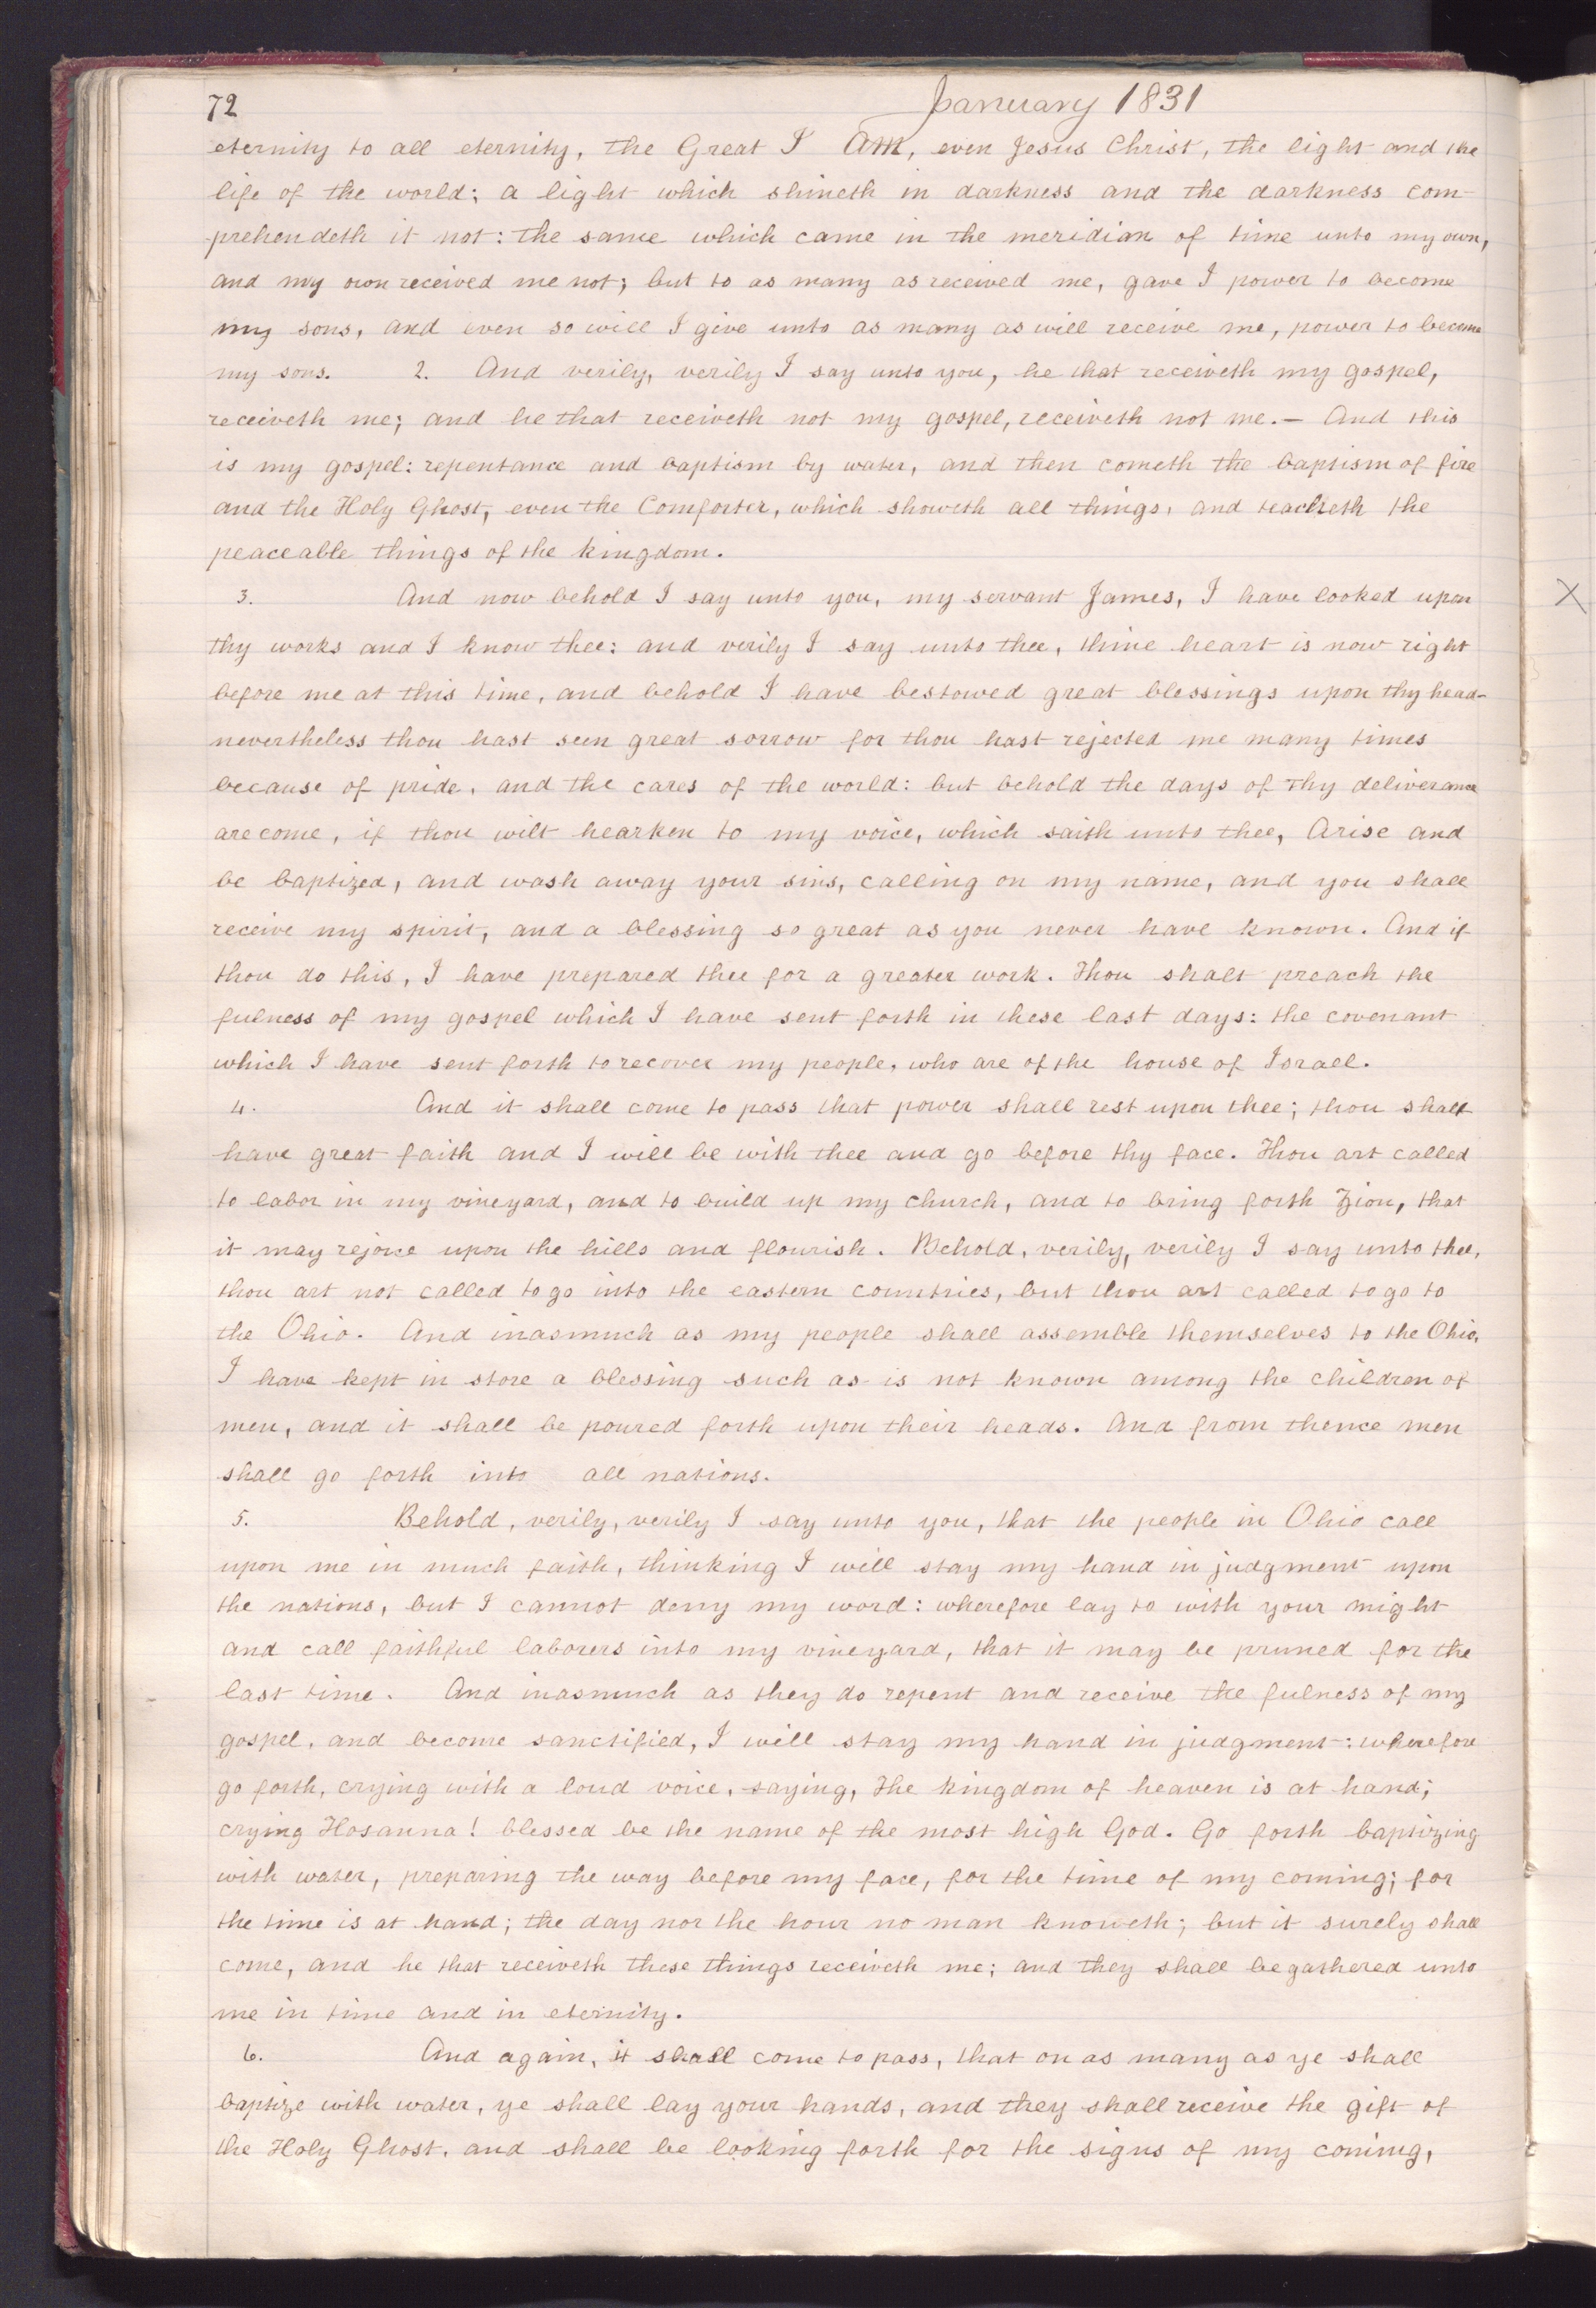 72
January 1831
eternity to all eternity, the Great I Am, even Jesus Christ, the light and the
life of the world; a light which shineth in darkness and the darkness com-
prehendeth it not: the same which came in the meridian of time unto my own,
and my own received me not; but to as many as received me, gave I power to become
my sons, and even so will I give unto as many as will receive me, power to become
my sons. 2. And verily, verily I say unto you, he that receiveth my gospel,
receiveth me; and he that receiveth not my gospel, receiveth not me.— And this
is my gospel: repentance and baptism by water, and then cometh the baptism of fire
and the Holy Ghost, even the Comforter, which showeth all things, and teacheth the
peaceable things of the kingdom.
3. And now behold I say unto you, my servant James, I have looked upon
thy works and I know thee: and verily I say unto thee, thine heart is now right
before me at this time, and behold I have bestowed great blessings upon thy head-
nevertheless thou hast seen great sorrow for thou hast rejected me many times
because of pride, and the cares of the world: but behold the days of thy deliverance
are come, if thou wilt hearken to my voice, which saith unto thee, Arise and
be baptized, and wash away your sins, calling on my name, and you shall
receive my spirit, and a blessing so great as you never have known. And if
thou do this, I have prepared thee for a greater work. Thou shalt preach the
fulness of my gospel which I have sent forth in these last days: the covenant
which I have sent forth to recover my people, who are of the house of Israel.
4. And it shall come to pass that power shall rest upon thee; thou shalt
have great faith and I will be with thee and go before thy face. Thou art called
to labor in my vineyard, and to build up my church, and to bring forth Zion, that
it may rejoice upon the hills and flourish. Behold, verily, verily I say unto thee,
thou art not called to go into the eastern countries, but thou art called to go to
the Ohio. And inasmuch as my people shall assemble themselves to the Ohio,
I have kept in store a blessing such as is not known among the children of
men, and it shall be poured forth upon their heads. And from thence men
shall go forth into all nations.
5. Behold, verily, verily I say unto you, that the people in Ohio call
upon me in much faith, thinking I will stay my hand in judgment upon
the nations, but I cannot deny my word: wherefore lay to with your might
and call faithful laborers into my vineyard, that it may be pruned for the
last time. And inasmuch as they do repent and receive the fulness of my
gospel, and become sanctified, I will stay my hand in judgment: wherefore
go forth, crying with a loud voice, saying, The kingdom of heaven is at hand;
crying Hosanna! blessed be the name of the most high God. Go forth baptizing
with water, preparing the way before my face, for the time of my coming; for
the time is at hand; the day nor the hour no man knoweth; but it surely shall
come, and he that receiveth these things receiveth me; and they shall be gathered unto
me in time and in eternity.
6. And again, it shall come to pass, that on as many as ye shall
baptize with water, ye shall lay your hands, and they shall receive the gift of
the Holy Ghost, and shall be looking forth for the signs of my coming,
X